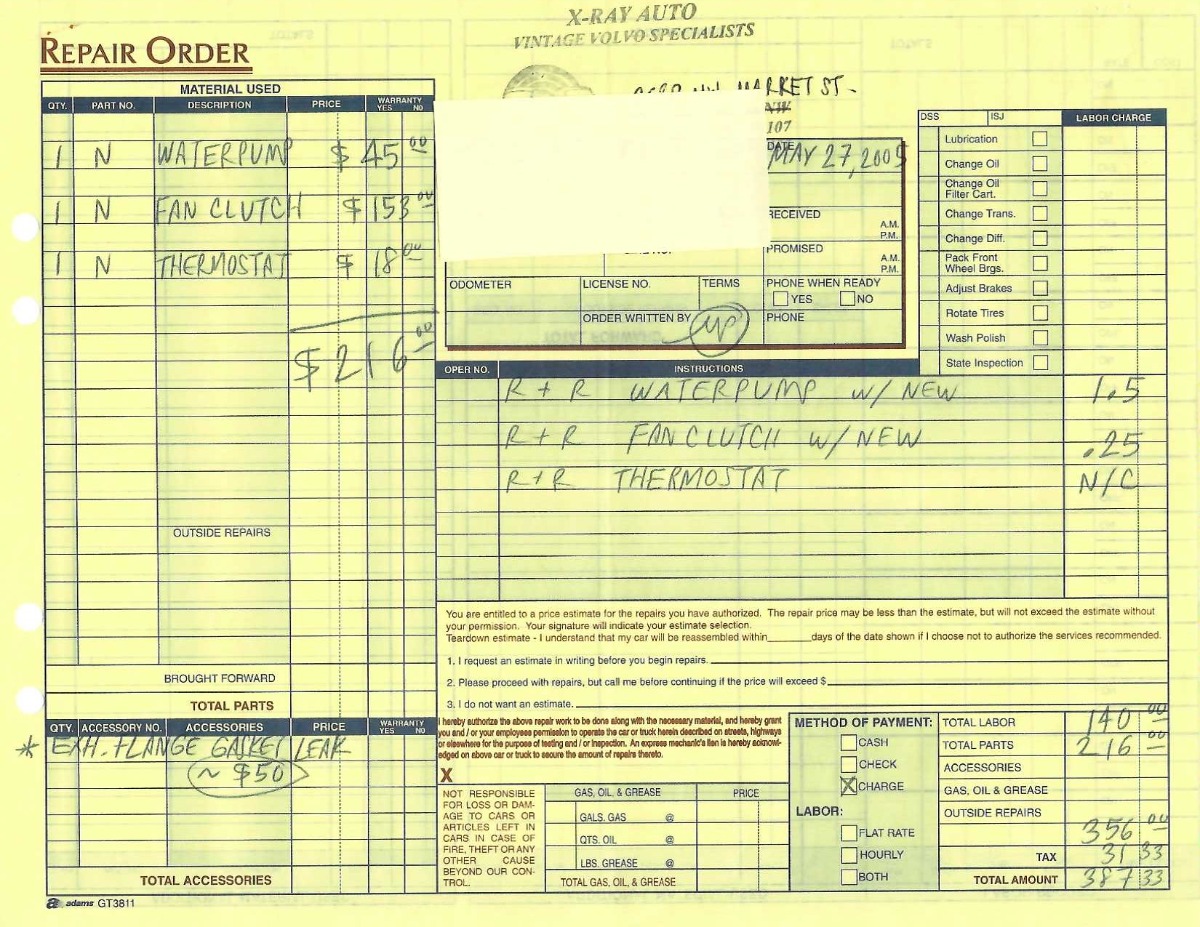 X-RAY AUTO
VINTAGE VOLVO SPECIALISTS
MARKET ST.
NW
107
REPAIR ORDER
MATERIAL USED
QTY. PART NO. DESCRIPTION PRICE WARRANTY YES NO
1 N WATERPUMP $45 00
1 N FAN CLUTCH $153 00
1 N THERMOSTAT $18 00
$216 00
OUTSIDE REPAIRS
BROUGHT FORWARD
TOTAL PARTS
QTY. ACCESSORY NO. ACCESSORIES PRICE WARRANTY YES NO
* EXH. FLANGE GASKET LEAK
~ $50
TOTAL ACCESSORIES
adams GT3811
DATE
MAY 27, 2005
RECEIVED
A.M.
P.M.
PROMISED
A.M.
P.M.
ODOMETER LICENSE NO. TERMS PHONE WHEN READY
YES NO
ORDER WRITTEN BY PHONE
DSS ISJ LABOR CHARGE
Lubrication
Change Oil
Change Oil
Filter Cart.
Change Trans.
Change Diff.
Pack Front
Wheel Brgs.
Adjust Brakes
Rotate Tires
Wash Polish
State Inspection
OPER NO. INSTRUCTIONS
R + R WATERPUMP w/ NEW 1.5
R + R FAN CLUTCH W/ NEW .25
R + R THERMOSTAT N/C
You are entitled to a price estimate for the repairs you have authorized. The repair price may be less than the estimate, but will not exceed the estimate without
your permission. Your signature will indicate your estimate selection.
Teardown estimate - I understand that my car will be reassembled within______days of the date shown if I choose not to authorize the services recommended.
1. I request an estimate in writing before you begin repairs.
2. Please proceed with repairs, but call me before continuing if the price will exceed $
3. I do not want an estimate.
I hereby authorize the above repair work to be done along with the necessary material, and hereby grant
you and / or your employees permission to operate the car or truck herein described on streets, highways
or elsewhere for the purpose of testing and / or inspection. An express mechanic's lien is hereby acknowl-
edged on above car or truck to secure the amount of repairs thereto.
X
NOT RESPONSIBLE
FOR LOSS OR DAM-
AGE TO CARS OR
ARTICLES LEFT IN
CARS IN CASE OF
FIRE, THEFT OR ANY
OTHER CAUSE
BEYOND OUR CON-
TROL.
GAS, OIL, & GREASE PRICE
GALS. GAS @
QTS. OIL @
LBS. GREASE @
TOTAL GAS, OIL, & GREASE
METHOD OF PAYMENT:
CASH
CHECK
CHARGE
LABOR:
FLAT RATE
HOURLY
BOTH
TOTAL LABOR 140 00
TOTAL PARTS 216 00
ACCESSORIES
GAS, OIL & GREASE
OUTSIDE REPAIRS
356 00
TAX 31 33
TOTAL AMOUNT 387 33